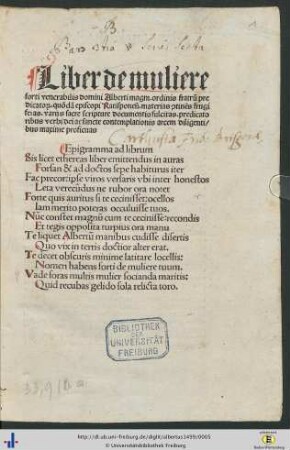 B.
Liber de muliere
forti venerabilis domini Alberti magni. ordinis fratrū pre
dicatoꝝ. quōdā episcopi Ratisponeñ. materias ptinēs frugi
feras. varijs sacre scripture documentis fulcitas. predicato
ribus verbi dei ac sancte contemplationis arcem diligenti/
bus maxime proficuas
Epigramma ad librum
Sis licet ethereas liber emittendus in auras
Forsan & ad doctos sepe habiturus iter
Fac precor: ipse viros versaris vbi inter honestos
Leta verecūdus ne rubor ora notet
Fonte quis auritus si te cecinisset: ocellos
Iam merito poteras occuluisse tuos.
Nūc constet magnū cum te cecinisse: recondis
Et tegis opposita turpius ora manu
Te liquet Albertū manibus cudisse disertis
Quo vix in terris doctior alter erat.
Te dicet obscuris minime latitare locellis:
Nomen habens forti de muliere tuum.
Vade foras multis mulier socianda maritis:
Quid recubas gelido sola relicta toro.
BIBLIOTHEK
DER
UNIVERSITÄT
FREIBURG
http://dl.ub.uni-freiburg.de/diglit/albertus1499c/0005
© Universitätsbibliothek Freiburg
Baden-Württemberg